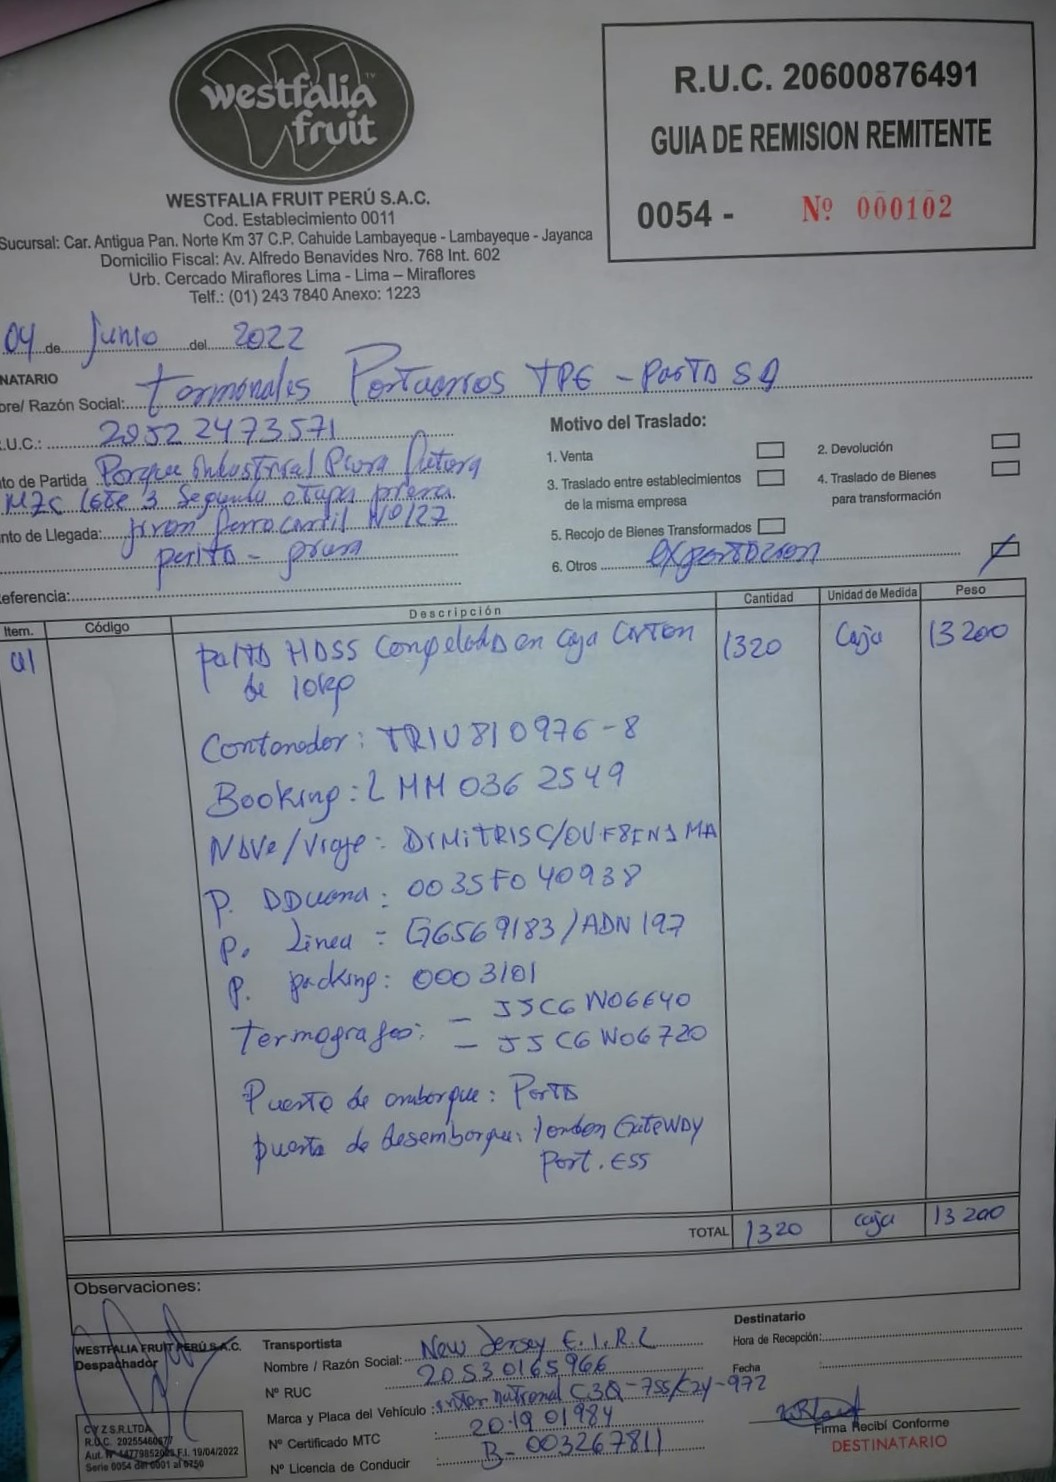 westfalia
fruit
WESTFALIA FRUIT PERÚ S.A.C.
Cod. Establecimiento 0011
Sucursal: Car. Antigua Pan. Norte Km 37 C.P. Cahuide Lambayeque - Lambayeque - Jayanca
Domicilio Fiscal: Av. Alfredo Benavides Nro. 768 Int. 602
Urb. Cercado Miraflores Lima - Lima – Miraflores
Telf.: (01) 243 7840 Anexo: 1223
R.U.C. 20600876491
GUIA DE REMISION REMITENTE
0054 - Nº 000102
04 de Junio del 2022
NATARIO
bre/ Razón Social: Terminales Portuarios TPE - Paita SA
.U.C.: 20522473571
to de Partida Parque industrial Piura futura
MZC lote 3 Segunda etapa piura
nto de Llegada: jiron ferrocarril Nº 127
paita - piura
eferencia:
Motivo del Traslado:
1. Venta
2. Devolución
3. Traslado entre establecimientos
de la misma empresa
4. Traslado de Bienes
para transformación
5. Recojo de Bienes Transformados
6. Otros exportacion
Item. Código Descripción Cantidad Unidad de Medida Peso
01 palta HASS Congelada en caja Carton 1320 Caja 13200
de 10kg
Contenedor: TRIU 810976-8
Booking: LMM 0362549
Nave/Viaje: DIMITRIS C/OUF8EN1MA
P. Aduana: 0035F040938
P. Linea: G6569183/ADN 197
P. packing: 0003101
Termografos: - JJCGW06640
- JJCGW06720
Puerto de embarque: Paita
puerto de desembarque: london GateWay
Port. ESS
TOTAL 1320 caja 13200
Observaciones:
WESTFALIA FRUIT PERÚ S.A.C.
Despachador
CYZ S.R.LTDA.
Serie 0054 del 0001 al 0750
Transportista
Nombre / Razón Social: New Jersey E.I.R.L
Nº RUC 20530165966
Marca y Placa del Vehículo: international C3Q-755/C2Y-972
Nº Certificado MTC 201901984
Nº Licencia de Conducir B-003267811
Destinatario
Hora de Recepción:
Fecha
Firma Recibí Conforme
DESTINATARIO